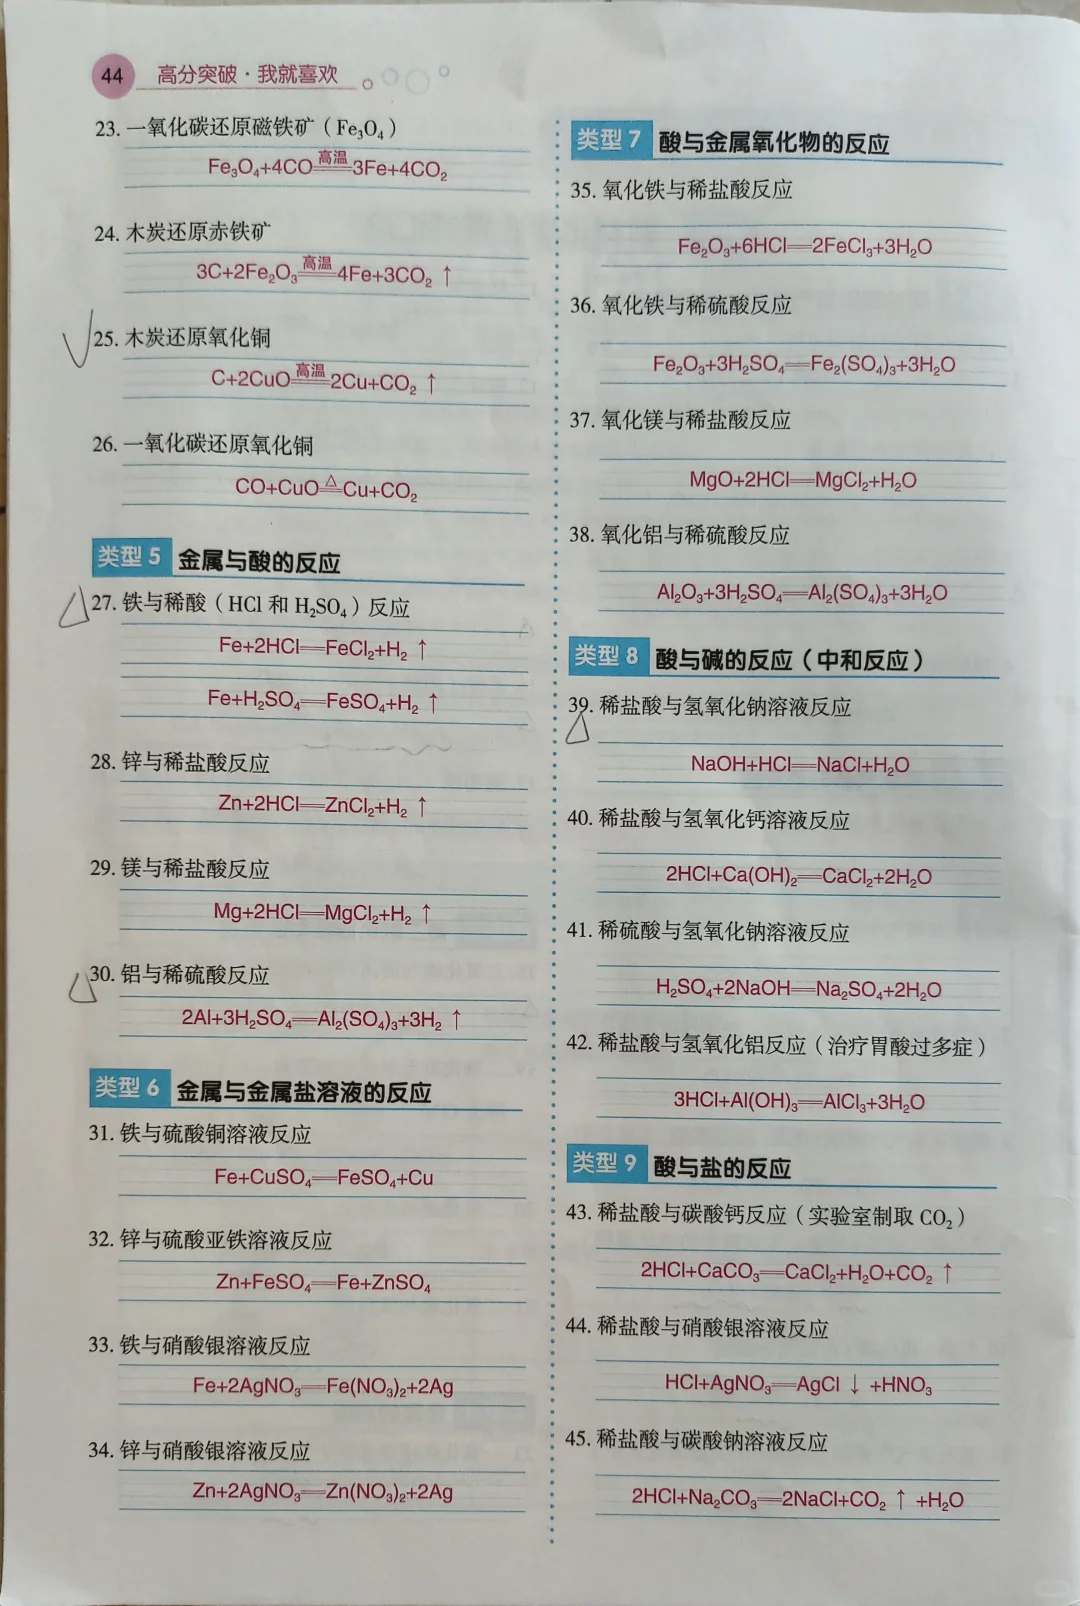 44 高分突破·我就喜欢
23. 一氧化碳还原磁铁矿（Fe₃O₄）
Fe₃O₄+4CO=高温=3Fe+4CO₂
24. 木炭还原赤铁矿
3C+2Fe₂O₃=高温=4Fe+3CO₂↑
25. 木炭还原氧化铜
C+2CuO=高温=2Cu+CO₂↑
26. 一氧化碳还原氧化铜
CO+CuO=△=Cu+CO₂
类型 5 金属与酸的反应
27. 铁与稀酸（HCl 和 H₂SO₄）反应
Fe+2HCl═FeCl₂+H₂↑
Fe+H₂SO₄═FeSO₄+H₂↑
28. 锌与稀盐酸反应
Zn+2HCl═ZnCl₂+H₂↑
29. 镁与稀盐酸反应
Mg+2HCl═MgCl₂+H₂↑
30. 铝与稀硫酸反应
2Al+3H₂SO₄═Al₂(SO₄)₃+3H₂↑
类型 6 金属与金属盐溶液的反应
31. 铁与硫酸铜溶液反应
Fe+CuSO₄═FeSO₄+Cu
32. 锌与硫酸亚铁溶液反应
Zn+FeSO₄═Fe+ZnSO₄
33. 铁与硝酸银溶液反应
Fe+2AgNO₃═Fe(NO₃)₂+2Ag
34. 锌与硝酸银溶液反应
Zn+2AgNO₃═Zn(NO₃)₂+2Ag
类型 7 酸与金属氧化物的反应
35. 氧化铁与稀盐酸反应
Fe₂O₃+6HCl═2FeCl₃+3H₂O
36. 氧化铁与稀硫酸反应
Fe₂O₃+3H₂SO₄═Fe₂(SO₄)₃+3H₂O
37. 氧化镁与稀盐酸反应
MgO+2HCl═MgCl₂+H₂O
38. 氧化铝与稀硫酸反应
Al₂O₃+3H₂SO₄═Al₂(SO₄)₃+3H₂O
类型 8 酸与碱的反应（中和反应）
39. 稀盐酸与氢氧化钠溶液反应
NaOH+HCl═NaCl+H₂O
40. 稀盐酸与氢氧化钙溶液反应
2HCl+Ca(OH)₂═CaCl₂+2H₂O
41. 稀硫酸与氢氧化钠溶液反应
H₂SO₄+2NaOH═Na₂SO₄+2H₂O
42. 稀盐酸与氢氧化铝反应（治疗胃酸过多症）
3HCl+Al(OH)₃═AlCl₃+3H₂O
类型 9 酸与盐的反应
43. 稀盐酸与碳酸钙反应（实验室制取 CO₂）
2HCl+CaCO₃═CaCl₂+H₂O+CO₂↑
44. 稀盐酸与硝酸银溶液反应
HCl+AgNO₃═AgCl↓+HNO₃
45. 稀盐酸与碳酸钠溶液反应
2HCl+Na₂CO₃═2NaCl+CO₂↑+H₂O